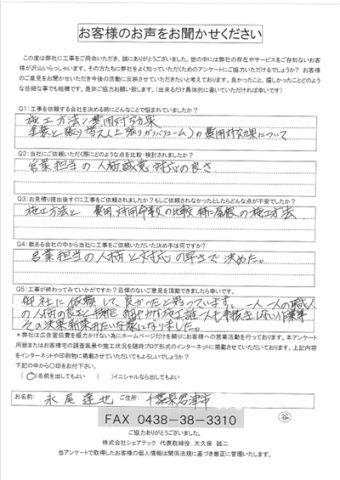 お客様のお声をお聞かせください
この度は弊社に工事をご用命いただき、誠にありがとうございます。世の中には弊社の存在やサービスをご存知ないお客様が沢山いらっしゃいます。その方たちに弊社をよく知っていただくためのアンケートにご協力いただけるでしょうか?お客様のご意見をお聞かせいただき今後の活動に反映させていただきたいと考えております。良かったこと、嬉しかったことどのような些細な事でも結構です。是非ご協力お願い致します。(出来るだけ具体的に書いていただければ幸いです)
Q1:工事を依頼する会社を決める時にどんなことで悩まれていましたか?
施工方法と費用対効果
塗装と張り替え(上張り)の費用対効果について
Q2:当社にご依頼いただく際にどのような点を比較・検討されましたか?
営業担当の人柄 誠意 対応の良さ
Q3:お見積り提出後すぐに工事をご依頼されましたか?もしご依頼されなかったとしたらどんな点が不安でしたか?
施工方法と 費用対用年数の比較 特に屋根の施工方法
Q4:数ある会社の中から当社に工事をご依頼いただいた決め手は何ですか?
営業担当の人柄と対応の早さで決めた。
Q5:工事が終わってみていかがですか?忌憚のないご意見を頂戴できましたら幸いです。
御社に依頼して良かったと思っています。一人一人の職人
の人柄の良さと技術
その結果新築みたいな家になりました。
*弊社は広告宣伝費を極力かけない為にホームページだけを頼りにお客様への営業活動を行っております。本アンケート用紙またはお客様宅の調査風景や施工状況を随時ブログ形式のインターネットに掲載させていただいております。上記内容をインターネットや印刷物に掲載させていただいてもよろしいでしょうか?
下記の中から〇印をお付け下さい。
( 〇 )名前を出してもよい ( )イニシャルなら出してもよい
お名前: 永尾達也 ご住所: 千葉県君津市
FAX 0438-38-3310
ご協力ありがとうございました。
株式会社シェアテック 代表取締役 大久保 誠二
当アンケートで取得したお客様の個人情報は関係法規に基づき厳正に管理いたします。